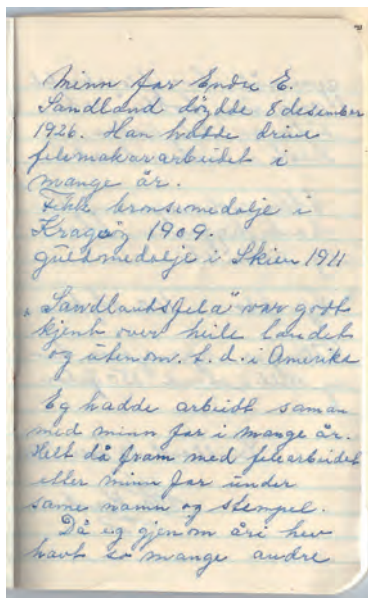 Minn far Endre E.
Sandland döydde 8 desember
1926. Han hadde drive
felemakararbeidet i
mange år.
Fekk bronsemedalje i
Kragöy 1909.
gullmedalje i Skien 1911
"Sandlandsfela" var godt
kjent over heile landet
og utenom. t.d. i Amerika
Eg hadde arbeidt saman
med minn far i mange år.
Helt då fram med felearbeidet
etter minn far under
same namn og stempel.
Då eg gjenom åri hev
havt so mange andre